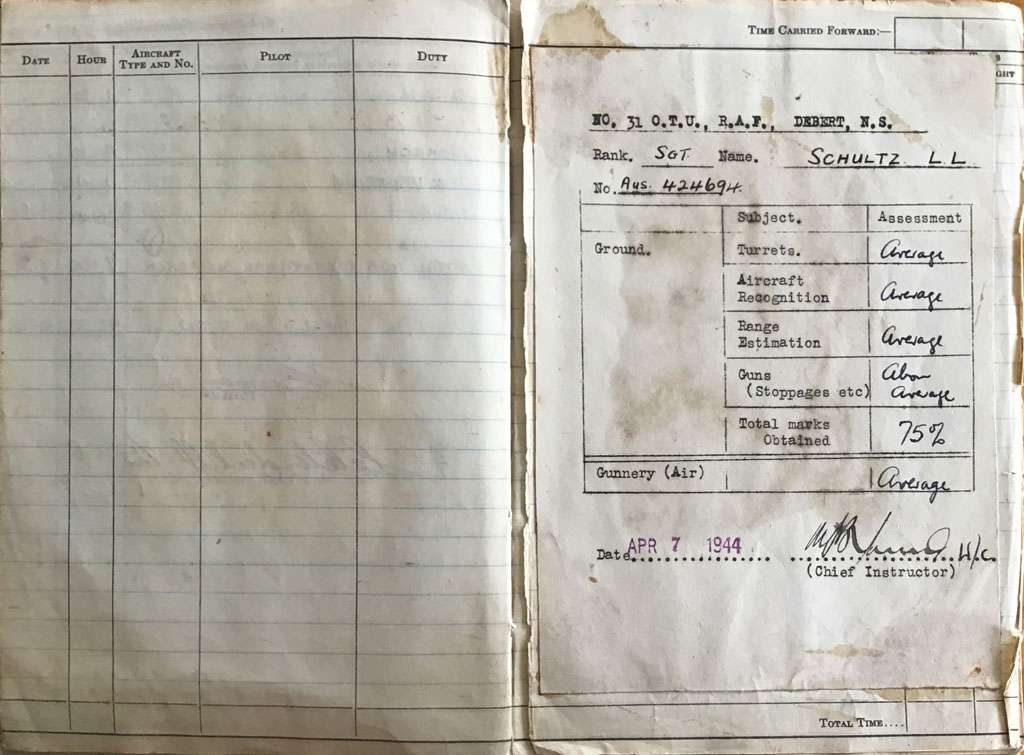 DATE HOUR AIRCRAFT TYPE AND NO. PILOT DUTY
TIME CARRIED FORWARD:—
GHT
NO. 31 O.T.U., R.A.F., DEBERT, N.S.
Rank. SGT. Name. SCHULTZ L L
No. Aus. 424694.
Subject. Assessment
Ground. Turrets. Average
Aircraft
Recognition Average
Range
Estimation Average
Guns Abov
(Stoppages etc) Average
Total marks
Obtained 75%
Gunnery (Air) Average
Date APR 7 1944 W/C
(Chief Instructor)
TOTAL TIME....